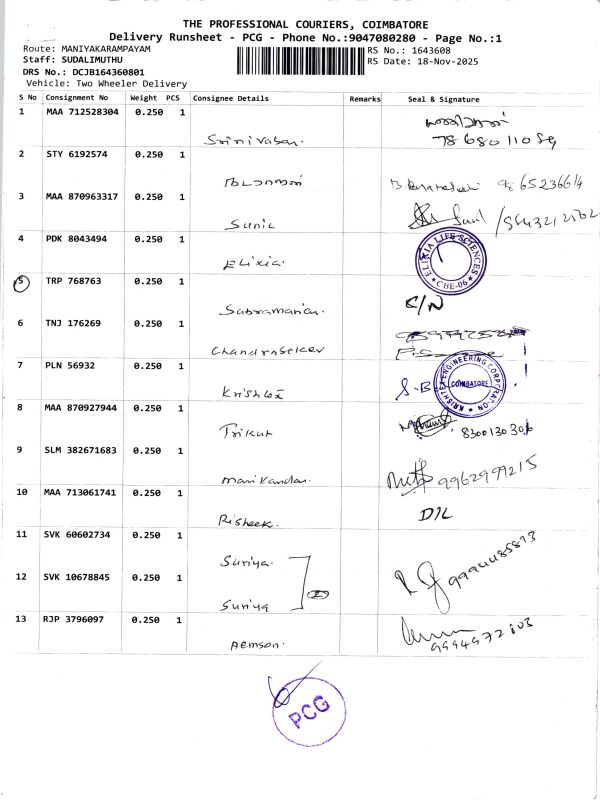 THE PROFESSIONAL COURIERS, COIMBATORE
Delivery Runsheet - PCG - Phone No.:9047080280 - Page No.:1
Route: MANIYAKARAMPAYAM
RS No.: 1643608
Staff: SUDALIMUTHU
RS Date: 18-Nov-2025
DRS No.: DCJB164360801
Vehicle: Two Wheeler Delivery
S No Consignment No Weight PCS Consignee Details Remarks Seal & Signature
1 MAA 712528304 0.250 1 Srinivasan.
2 STY 6192574 0.250 1 9865236614
3 MAA 870963317 0.250 1 Sunil
4 PDK 8043494 0.250 1 Elixia. ELIXIA LIFE SCIENCES * CBE-06 *
5 TRP 768763 0.250 1 Subramanian. C/N
6 TNJ 176269 0.250 1 Chandrasekar
7 PLN 56932 0.250 1 ENGINEERING CORPORATION COIMBATORE
8 MAA 870927944 0.250 1 Trikut
9 SLM 382671683 0.250 1 Manikandan. 9962999215
10 MAA 713061741 0.250 1 Risheek.
11 SVK 60602734 0.250 1 Suriya.
12 SVK 10678845 0.250 1 Suriya
13 RJP 3796097 0.250 1 Aemson. 9994972803
PCG